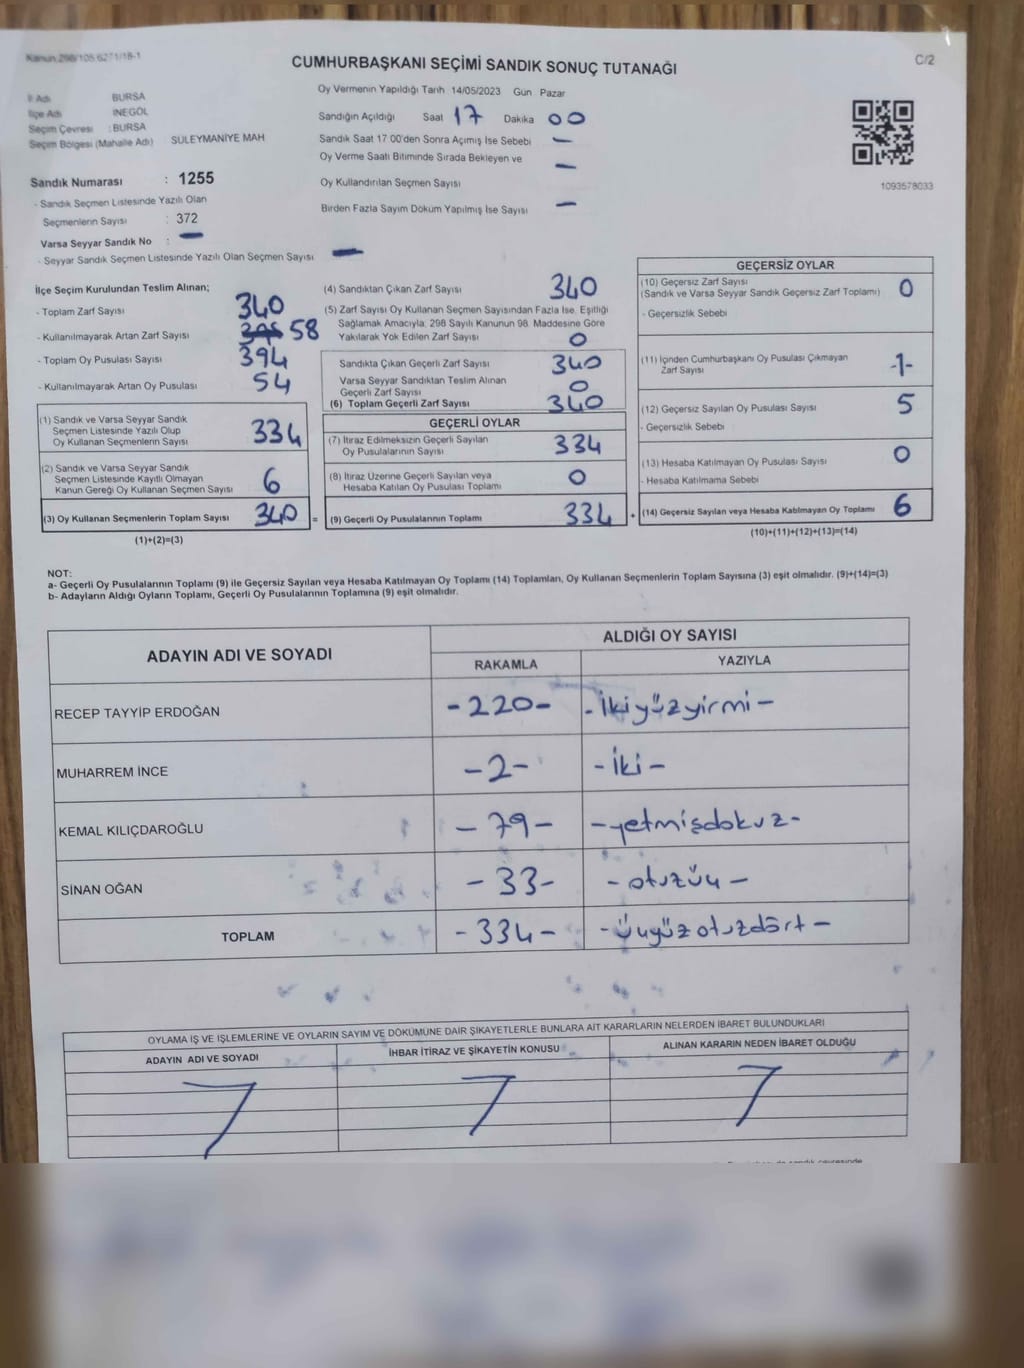 Kanun 298/105 6271/18-1
C/2
CUMHURBAŞKANI SEÇİMİ SANDIK SONUÇ TUTANAĞI
İl Adı BURSA
İlçe Adı İNEGÖL
Seçim Çevresi : BURSA
Seçim Bölgesi (Mahalle Adı) SÜLEYMANİYE MAH
Sandık Numarası : 1255
- Sandık Seçmen Listesinde Yazılı Olan
Seçmenlerin Sayısı : 372
Varsa Seyyar Sandık No : —
- Seyyar Sandık Seçmen Listesinde Yazılı Olan Seçmen Sayısı —
Oy Vermenin Yapıldığı Tarih 14/05/2023 Gün Pazar
Sandığın Açıldığı Saat 17 Dakika 00
Sandık Saat 17 00'den Sonra Açımış İse Sebebi —
Oy Verme Saati Bitiminde Sırada Bekleyen ve —
Oy Kullandırılan Seçmen Sayısı
Birden Fazla Sayım Döküm Yapılmış İse Sayısı —
1093578033
İlçe Seçim Kurulundan Teslim Alınan;
- Toplam Zarf Sayısı 340
- Kullanılmayarak Artan Zarf Sayısı 58
- Toplam Oy Pusulası Sayısı 394
- Kullanılmayarak Artan Oy Pusulası 54
(1) Sandık ve Varsa Seyyar Sandık
Seçmen Listesinde Yazılı Olup
Oy Kullanan Seçmenlerin Sayısı 334
(2) Sandık ve Varsa Seyyar Sandık
Seçmen Listesinde Kayıtlı Olmayan
Kanun Gereği Oy Kullanan Seçmen Sayısı 6
(3) Oy Kullanan Seçmenlerin Toplam Sayısı 340 =
(1)+(2)=(3)
(4) Sandıktan Çıkan Zarf Sayısı 340
(5) Zarf Sayısı Oy Kullanan Seçmen Sayısından Fazla İse, Eşitliği
Sağlamak Amacıyla, 298 Sayılı Kanunun 98. Maddesine Göre
Yakılarak Yok Edilen Zarf Sayısı 0
Sandıkta Çıkan Geçerli Zarf Sayısı 340
Varsa Seyyar Sandıktan Teslim Alınan
Geçerli Zarf Sayısı 0
(6) Toplam Geçerli Zarf Sayısı 340
GEÇERLİ OYLAR
(7) İtiraz Edilmeksizin Geçerli Sayılan
Oy Pusulalarının Sayısı 334
(8) İtiraz Üzerine Geçerli Sayılan veya
Hesaba Katılan Oy Pusulası Toplamı 0
(9) Geçerli Oy Pusulalarının Toplamı 334 +
GEÇERSİZ OYLAR
(10) Geçersiz Zarf Sayısı
(Sandık ve Varsa Seyyar Sandık Geçersiz Zarf Toplamı) 0
- Geçersizlik Sebebi
(11) İçinden Cumhurbaşkanı Oy Pusulası Çıkmayan
Zarf Sayısı -1-
(12) Geçersiz Sayılan Oy Pusulası Sayısı 5
- Geçersizlik Sebebi
(13) Hesaba Katılmayan Oy Pusulası Sayısı 0
- Hesaba Katılmama Sebebi
(14) Geçersiz Sayılan veya Hesaba Katılmayan Oy Toplamı 6
(10)+(11)+(12)+(13)=(14)
NOT:
a- Geçerli Oy Pusulalarının Toplamı (9) ile Geçersiz Sayılan veya Hesaba Katılmayan Oy Toplamı (14) Toplamları, Oy Kullanan Seçmenlerin Toplam Sayısına (3) eşit olmalıdır. (9)+(14)=(3)
b- Adayların Aldığı Oyların Toplamı, Geçerli Oy Pusulalarının Toplamına (9) eşit olmalıdır.
ADAYIN ADI VE SOYADI ALDIĞI OY SAYISI
RAKAMLA YAZIYLA
RECEP TAYYİP ERDOĞAN -220- -İkiyüzyirmi-
MUHARREM İNCE -2- -İki-
KEMAL KILIÇDAROĞLU -79- -yetmişdokuz-
SİNAN OĞAN -33- -otuzüç-
TOPLAM -334- -üçyüzotuzdört-
OYLAMA İŞ VE İŞLEMLERİNE VE OYLARIN SAYIM VE DÖKÜMÜNE DAİR ŞİKAYETLERLE BUNLARA AİT KARARLARIN NELERDEN İBARET BULUNDUKLARI
ADAYIN ADI VE SOYADI İHBAR İTİRAZ VE ŞİKAYETİN KONUSU ALINAN KARARIN NEDEN İBARET OLDUĞU